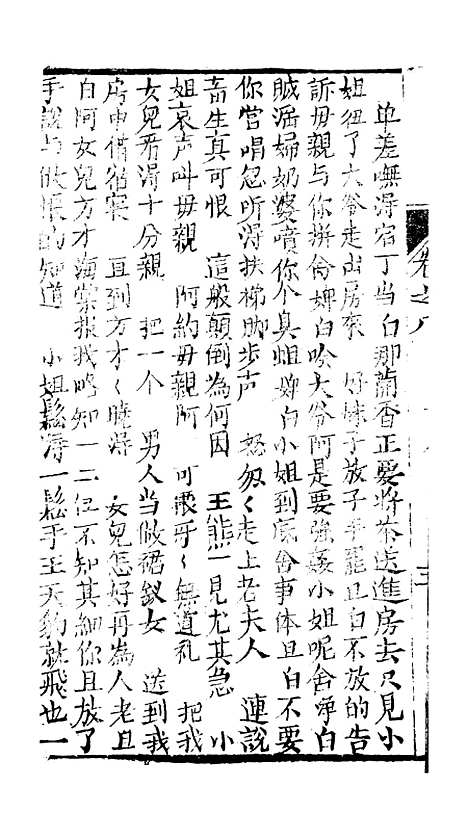 单差嘸得宿丁当白那蘭香正要將茶送進房去只見小
姐扭了大爺走出房來 好妹子放子手罷旦白不放的告
訴毋親与你拼俞婢白唅大爷阿是要強姦小姐呢舍啐白
賊滛婦奶婆噴你个臭蛆婢白小姐到底舍事体旦白不要
你當唱忽听得扶梯脚步声 怒匆〱走上老夫人 連說
畜生真可恨 這般顛倒為何因 王熊一見尤其急 小
姐哀声叫毋親 阿約毋親阿 可恨哥〱無道礼 把我
女兒看得十分親 把一个 男人当做裙釵女 送到我
房中借宿寀 直到方才〱曉得 女兒怎好再為人老旦
白阿女兒方才海棠报我略知一二但不知其細你且放了
手說与做娘的知道 小姐鬆得一鬆手王天豹就飛也一
卷之八
三